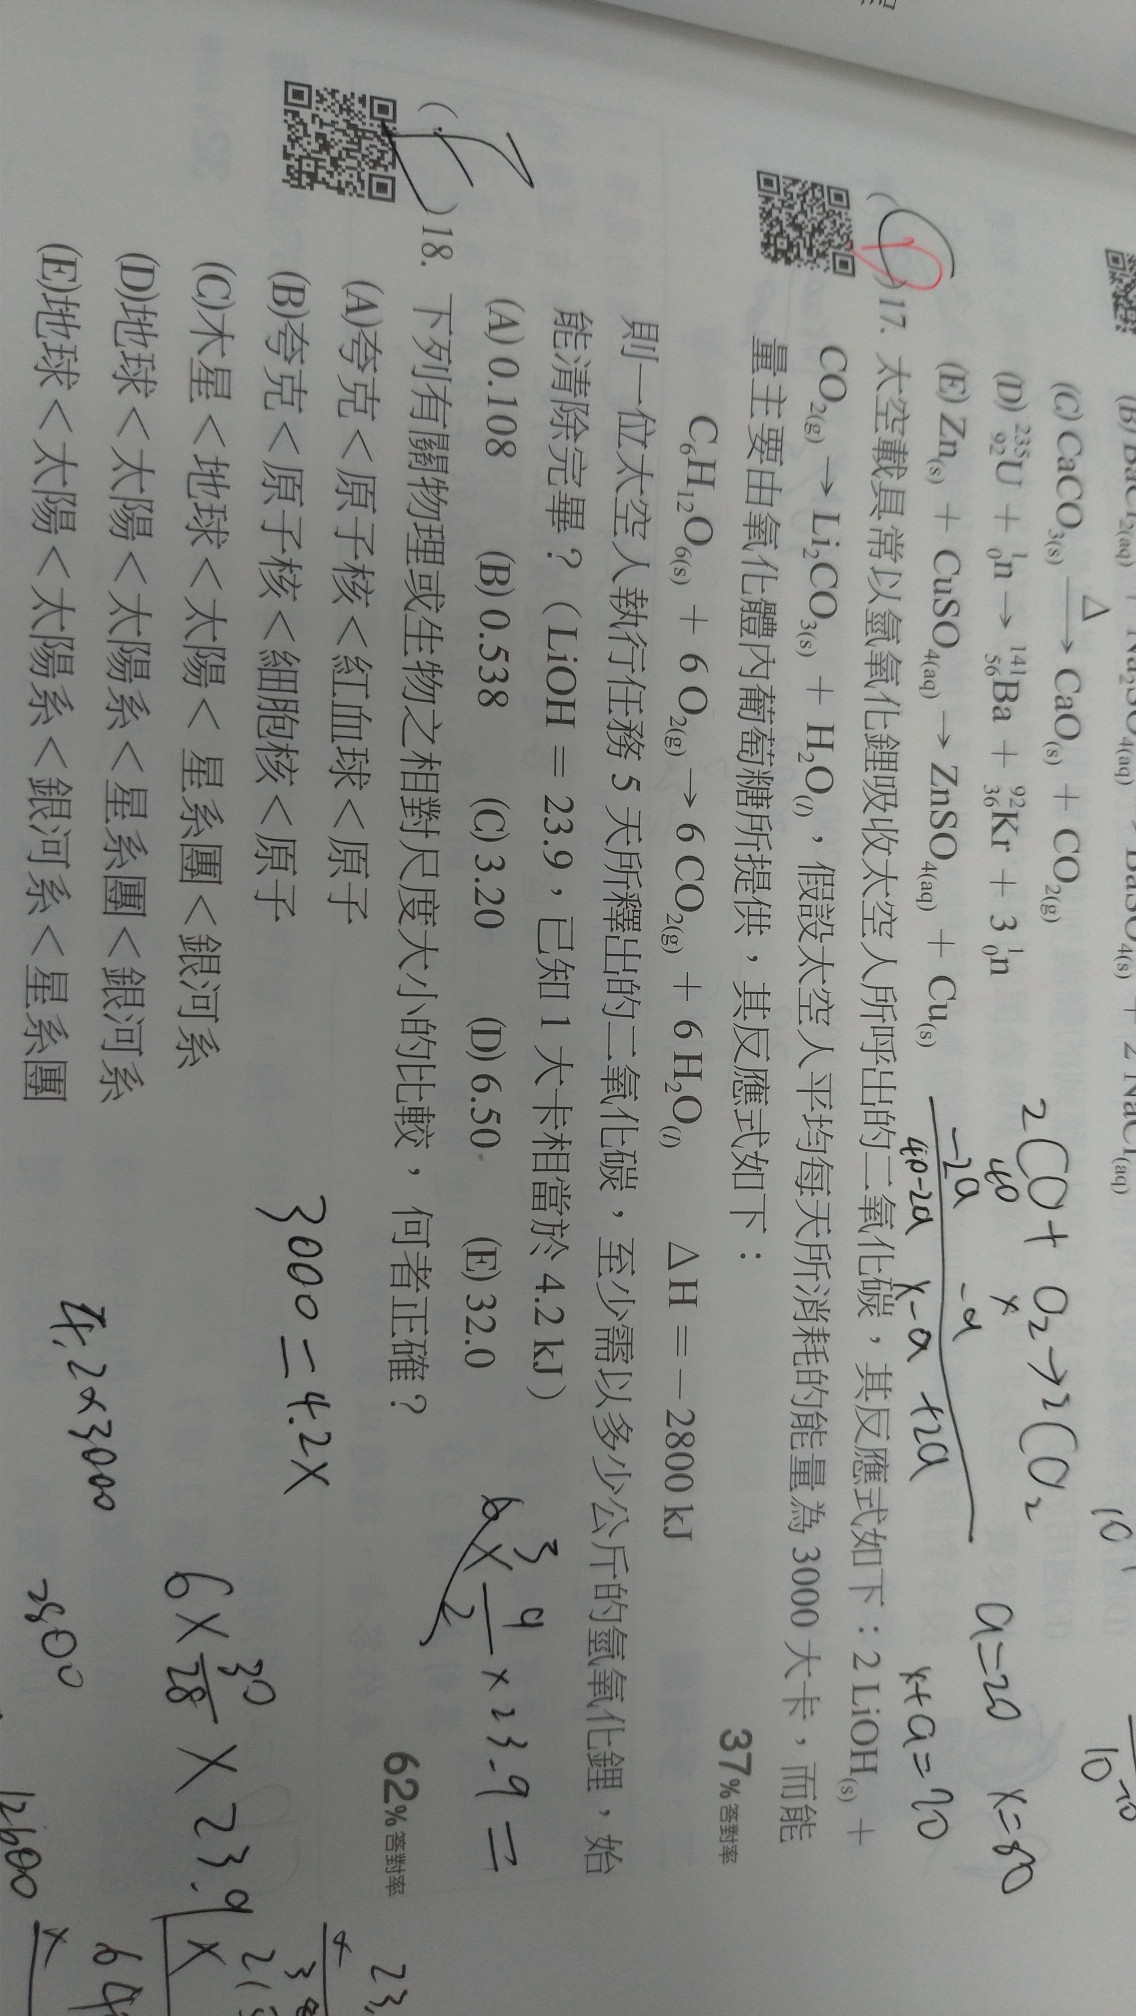 (B) BaCl₂(aq) + Na₂SO₄(aq) → BaSO₄(s) + 2 NaCl(aq)
(C) CaCO₃(s) —Δ→ CaO(s) + CO₂(g)
(D) ²³⁵₉₂U + ¹₀n → ¹⁴¹₅₆Ba + ⁹²₃₆Kr + 3 ¹₀n
(E) Zn(s) + CuSO₄(aq) → ZnSO₄(aq) + Cu(s)
2CO + O₂ → 2CO₂
40 x
-2a -a
40-2a x-a +2a
a=20 x=80
x+a=70
( D )17. 太空載具常以氫氧化鋰吸收太空人所呼出的二氧化碳，其反應式如下：2 LiOH(s) +
CO₂(g) → Li₂CO₃(s) + H₂O(l)，假設太空人平均每天所消耗的能量為 3000 大卡，而能
量主要由氧化體內葡萄糖所提供，其反應式如下：
37%答對率
C₆H₁₂O₆(s) + 6 O₂(g) → 6 CO₂(g) + 6 H₂O(l) ΔH = －2800 kJ
則一位太空人執行任務 5 天所釋出的二氧化碳，至少需以多少公斤的氫氧化鋰，始
能清除完畢？（LiOH = 23.9，已知 1 大卡相當於 4.2 kJ）
(A) 0.108 (B) 0.538 (C) 3.20 (D) 6.50 (E) 32.0
( E )18. 下列有關物理或生物之相對尺度大小的比較，何者正確？
62%答對率
(A)夸克＜原子核＜紅血球＜原子
(B)夸克＜原子核＜細胞核＜原子
(C)木星＜地球＜太陽＜星系團＜銀河系
(D)地球＜太陽＜太陽系＜星系團＜銀河系
(E)地球＜太陽＜太陽系＜銀河系＜星系團
3000 = 4.2x
4.2×3000
2800
12600
6 × 30/28 × 23.9